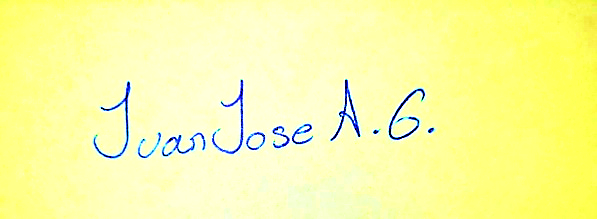 Juan Jose A. G.